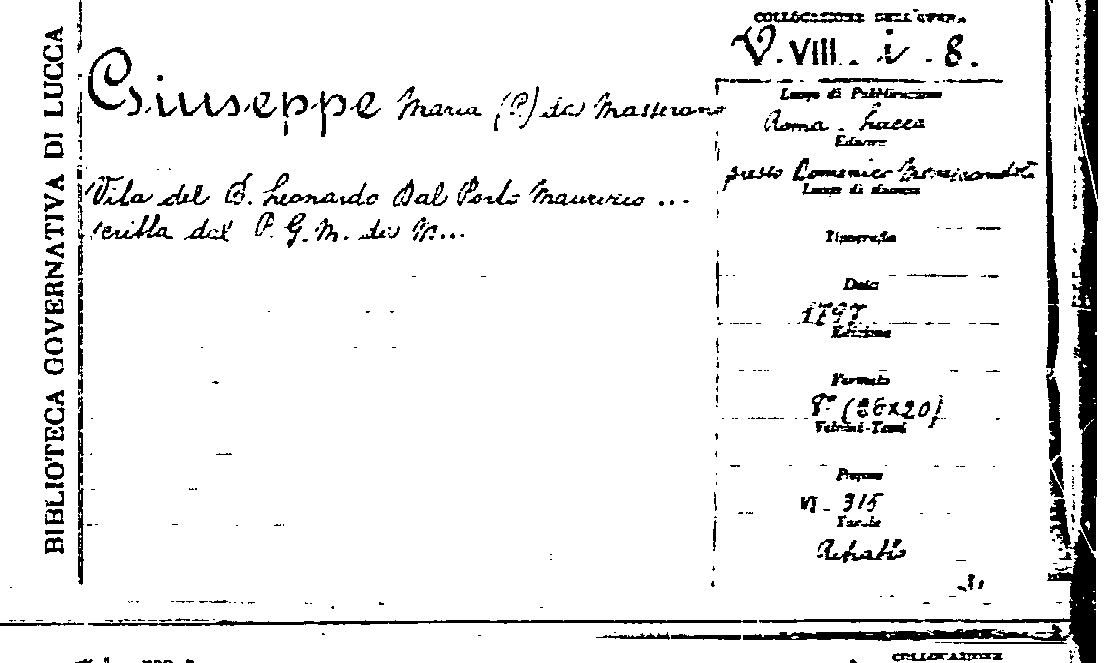 BIBLIOTECA GOVERNATIVA DI LUCCA
COLLOCAZIONE DELL'OPERA
V. VIII. i. 8.
Giuseppe Maria (P.) da Masserano
Vita del B. Leonardo Dal Porto Maurizio ...
scritta dal P. G. M. da M...
Luogo di Pubblicazione
Roma. Lucca
Editore
presso Domenico
Luogo di stampa
Tipografia
Data
1797
Edizione
Formato
8° (26x20)
Volumi-Tomi
Pagine
VI - 315
Tavole
Ritratto
COLLOCAZIONE